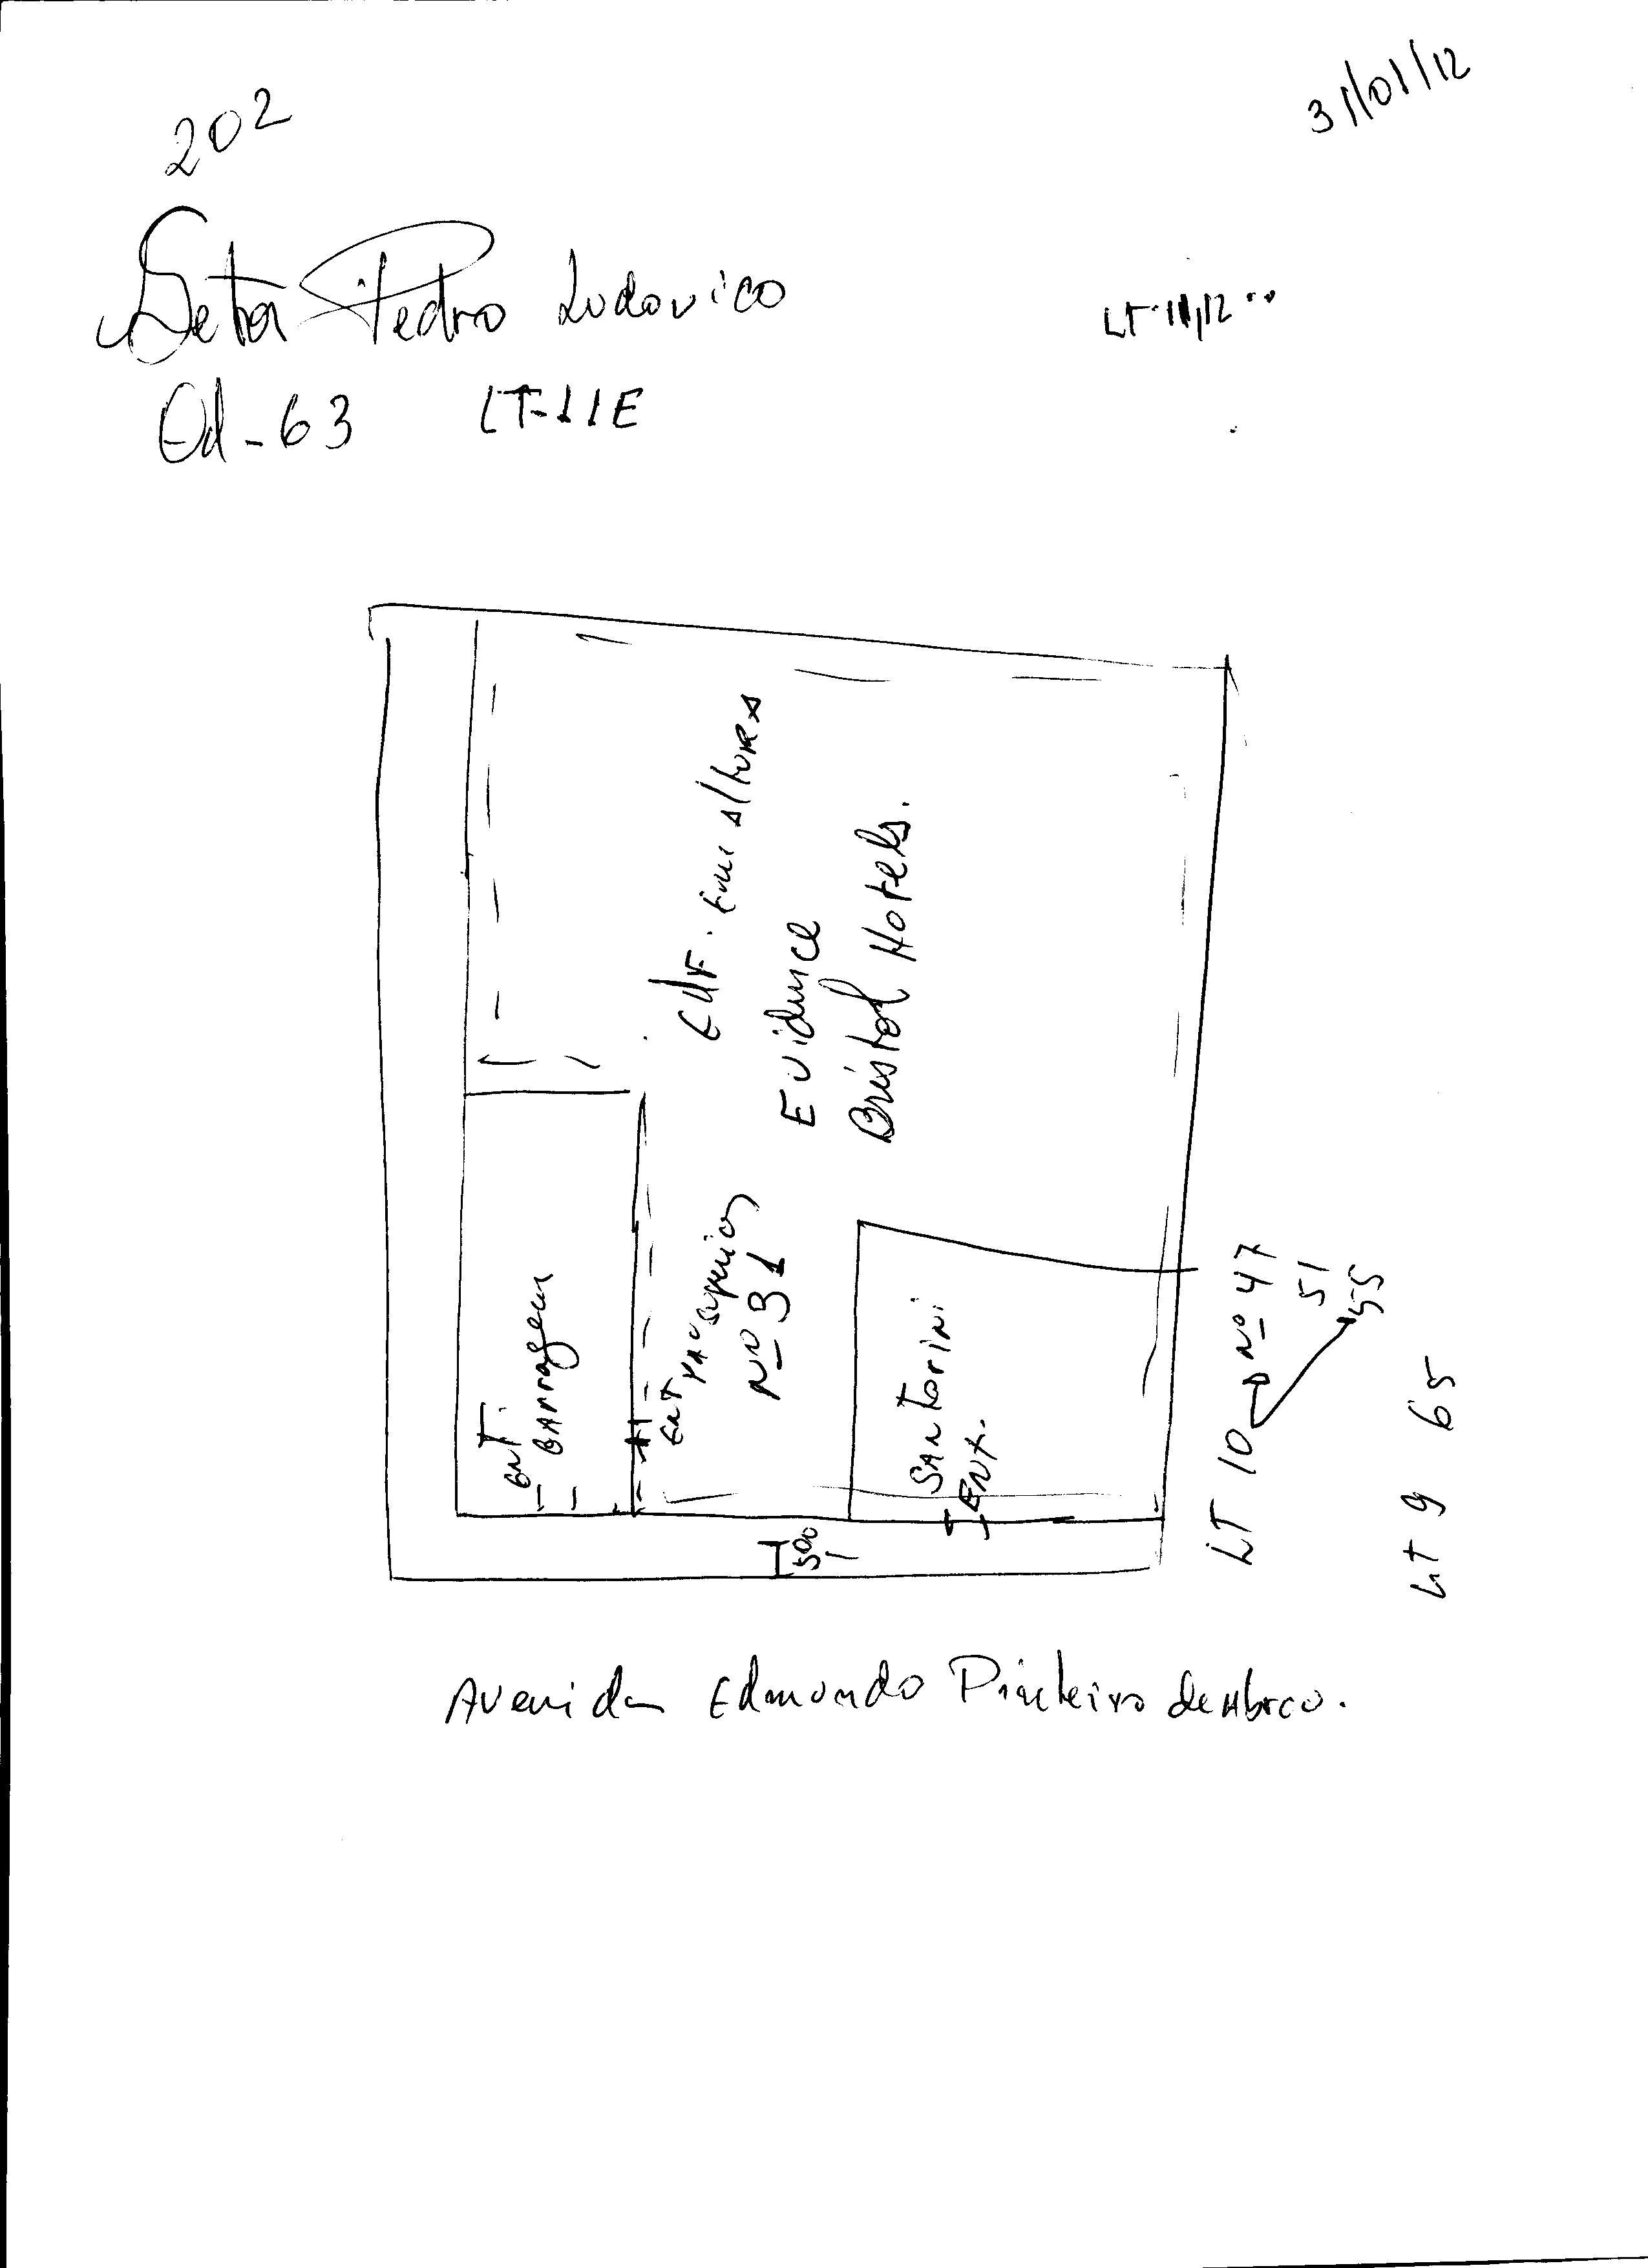 31/01/12
202
Setor Pedro Ludovico
LT-11,12
Qd-63 LT-11E
Edf. em altura
Evidence
Bristol Hotels.
Ent. garragem
Ent pav superior
Nº 31
Santorini
Ent.
500
LT 10 Nº 47
51
55
Lt 9 65
Avenida Edmundo Pinheiro de Abreu.